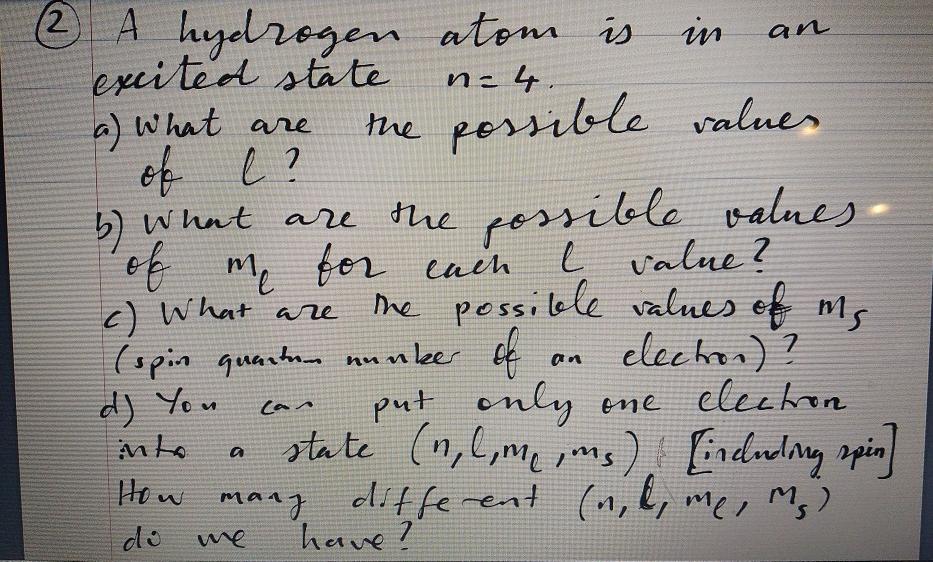 ② A hydrogen atom is in an
excited state n = 4.
a) What are the possible values
of l ?
b) What are the possible values
of mₗ for each l value?
c) What are the possible values of mₛ
(spin quantum number of an electron)?
d) You can put only one electron
into a state (n, l, mₗ, mₛ) [including spin]
How many different (n, l, mₗ, mₛ)
do we have?